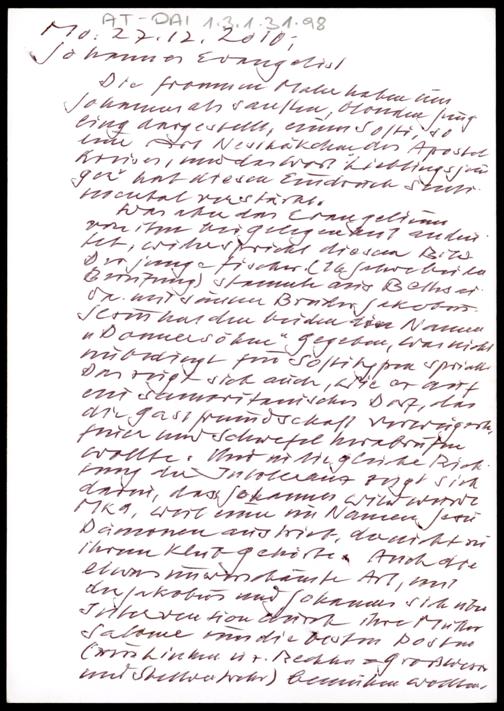 AT-DAI 1.3.1.31.98
Mo. 27.12.2010,
Johannes Evangelist
Die frommen Maler haben uns
Johannes als sanften, blonden Jüng
ling dargestellt, einen Softi, so
eine Art Nesthäkchen des Apostel
kreises, und das Wort "Lieblingsjün
ger" hat diesen Eindruck senti
mental verstärkt.
Was aber das Evangelium
von ihm
tet, widerspricht diesem Bild
Der junge Fischer (16 Jahre bei der
Berufung) stammte aus Betsai
da mit seinem Bruder Jakobus.
Jesus hat den beiden den Namen
"Donnersöhne" gegeben, was nicht
unbedingt für Softitypen spricht.
Das zeigt sich auch, wie er auf
ein samaritanisches Dorf, das
die Gastfreundschaft verweigerte,
Feuer und Schwefel herabrufen
wollte. Und in die gleiche Rich
tung der Intoleranz zeigt sich
darin, dass Johannes wild wurde
Mk 9, weil einer im Namen Jesu
Dämonen austrieb, der nicht zu
ihrem Klub gehörte. Auch die
etwas unverschämte Art, mit
der Jakobus und Johannes sich über
Intervention durch ihre Mutter
Salome um die besten Posten
(zur Linken u. r. Rechten = Grosswesir
und Stellvertreter) bemühen wollen,